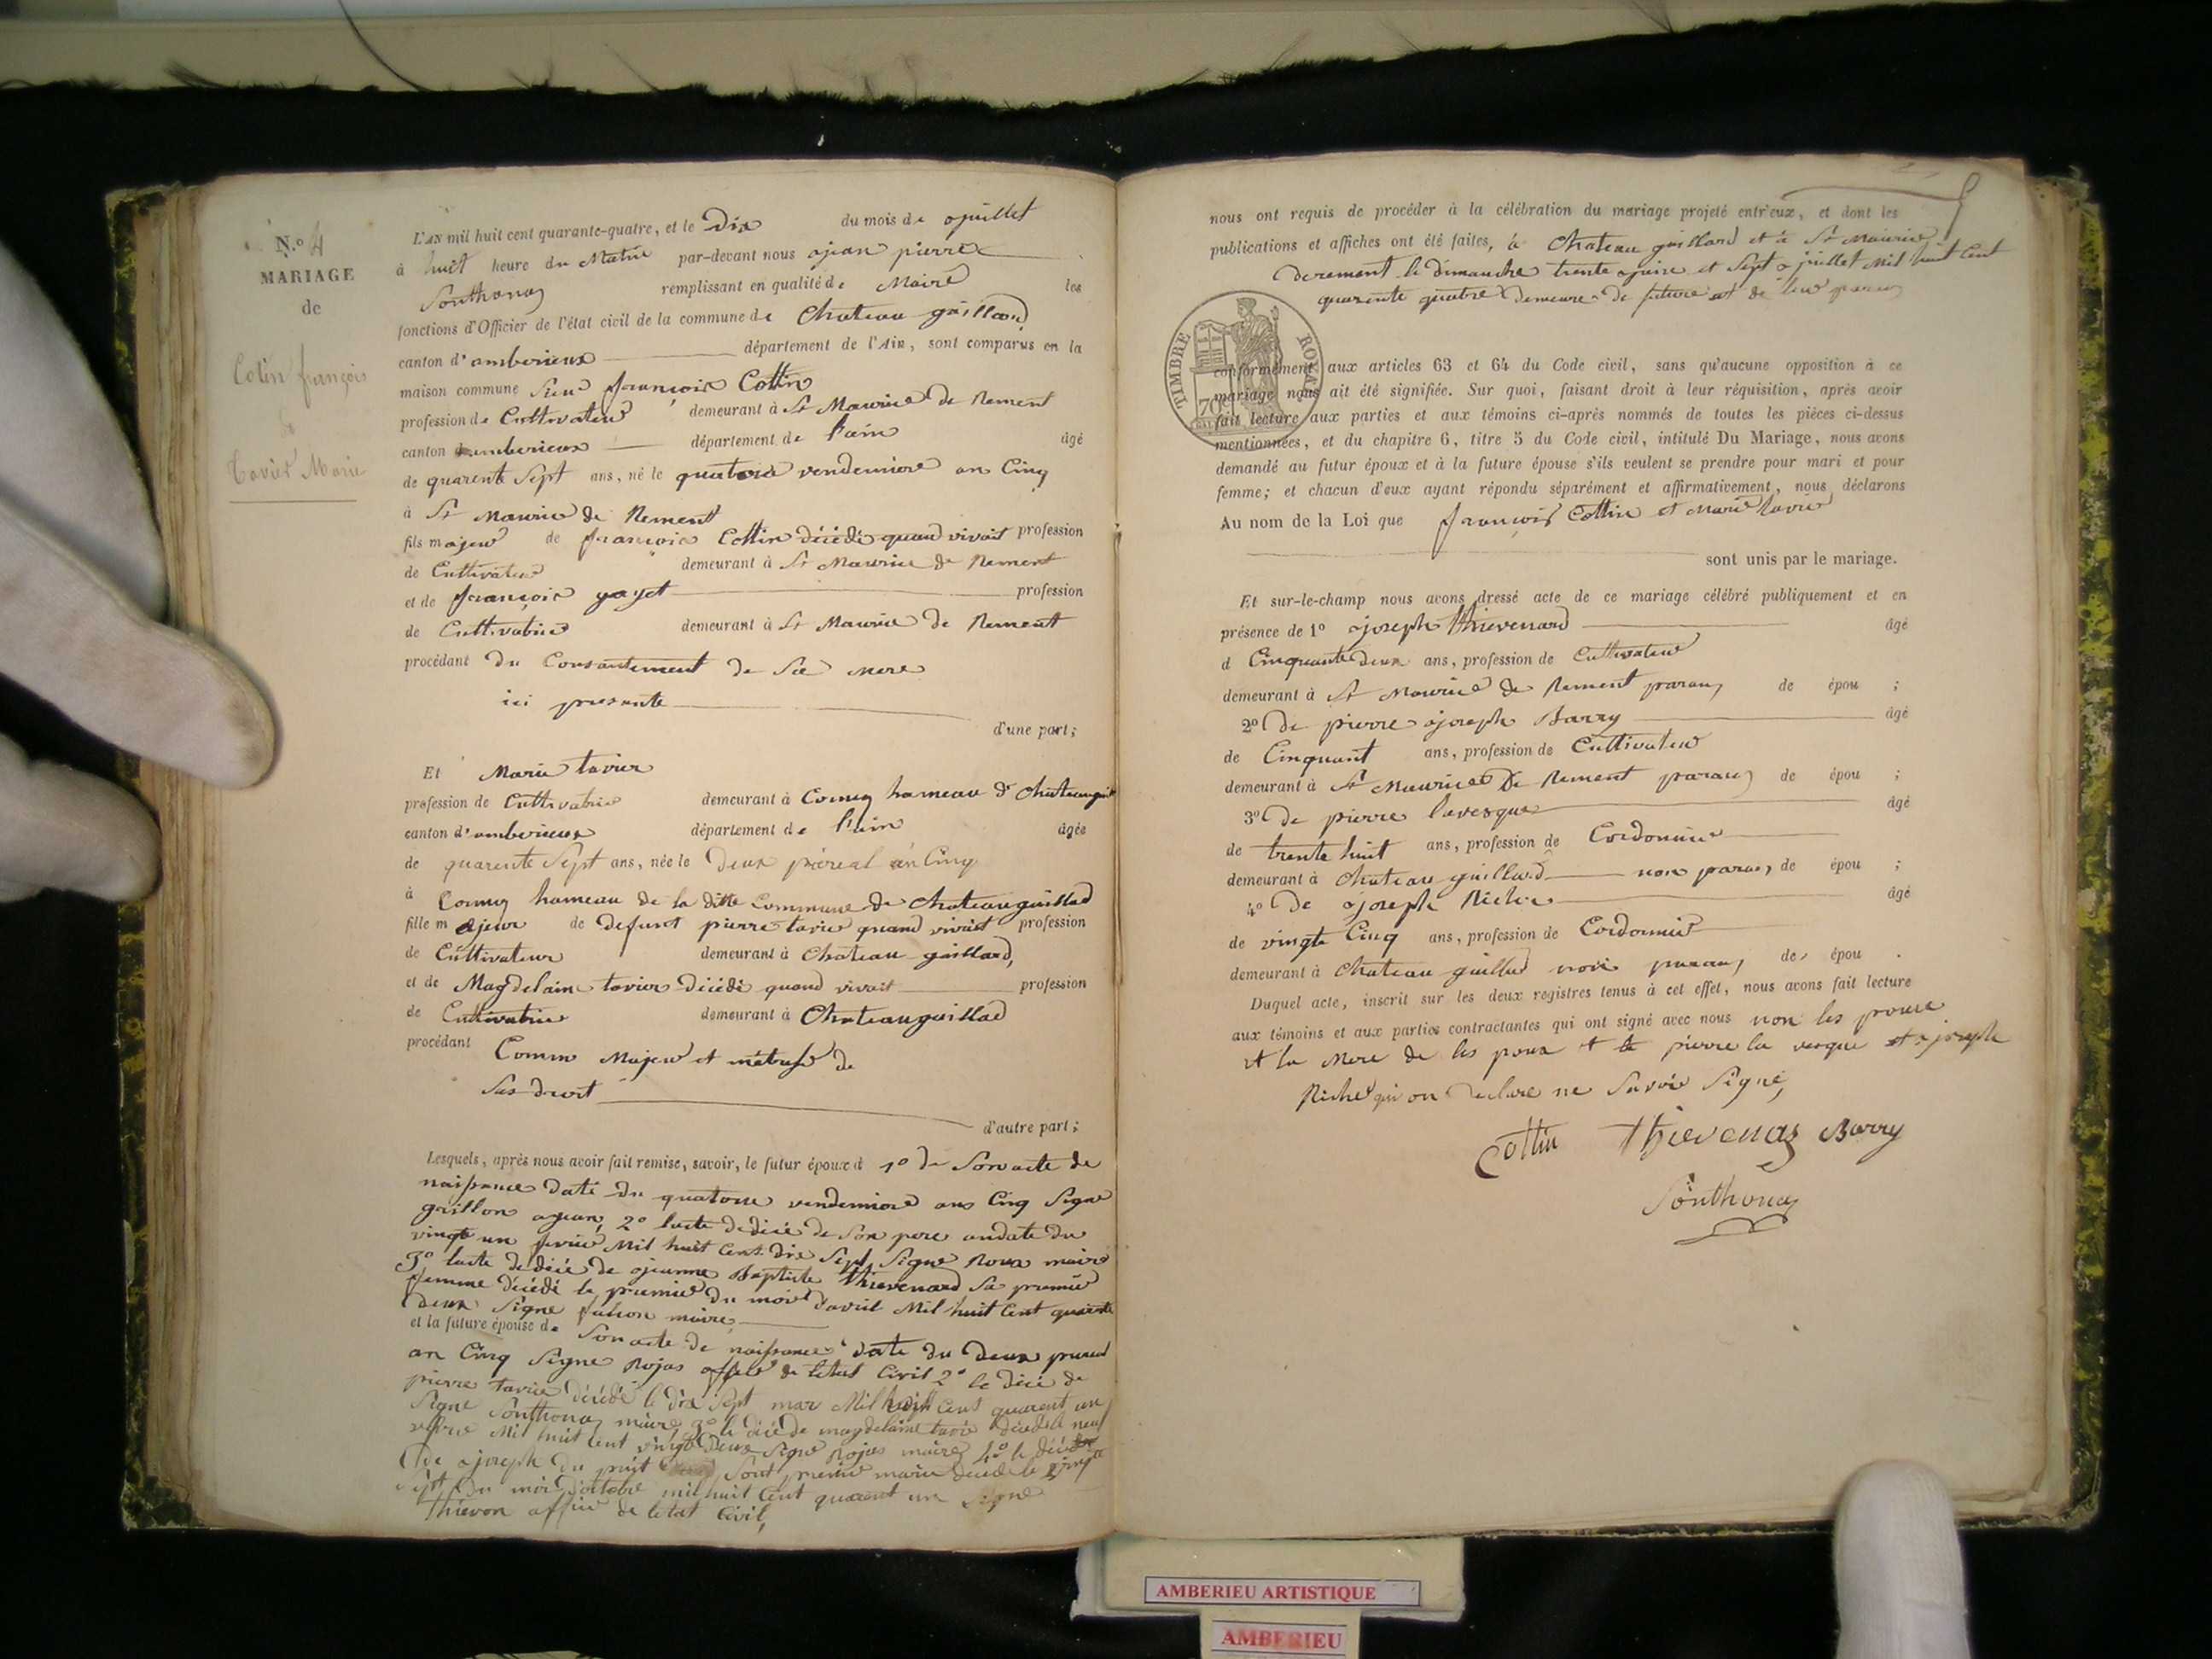 N.º 4
MARIAGE
de
Cotin françois
&
tavier Marie
L'AN mil huit cent quarante-quatre, et le Dix du mois de ajuillet
à huit heure du Matin par-devant nous ajean pierre
Sonthonax remplissant en qualité de Maire les
fonctions d'Officier de l'état civil de la commune de Chateau gaillard
canton d'amberieux département de l'Ain, sont comparus en la
maison commune Sieu françois Cottin
profession de Cultivateur demeurant à St Maurice de Rement
canton d'amberieux département de l'ain âgé
de quarente Sept ans, né le quatorze vendemiere an Cinq
à St Maurice de Rement
fils majeur de françois Cottin décédé quand vivait profession
de Cultivateur demeurant à St Maurice de Rement
et de françoise gayet profession
de Cultivatrice demeurant à St Maurice de Rement
procédant du Consantement de Sa mere
ici presente
d'une part;
Et Marie tavier
profession de Cultivatrice demeurant à Cormoz hameau de Chateaugail
canton d'amberieux département de l'ain âgée
de quarente Sept ans, née le Deux préreal an Cinq
à Cormoz hameau de la ditte Commune de Chateaugaillad
fille majeur de defunt pierre tavier quand vivait profession
de Cultivateur demeurant à Chateau gaillard,
et de Magdelaine tavier décédé quand vivait profession
de Cultivatrice demeurant à Chateaugaillad
procédant Comme Majeur et métresse de
Ses droit
d'autre part;
Lesquels, après nous avoir fait remise, savoir, le futur époux d 1º de Son acte de
naissance daté du quatorze vendemiere ans Cinq Signe
grillon ajean, 2º lacte dedicé de Son pere andate du
vingt un fevrier Mil huit Cent dix Sept, Signe Roux maire
3º lacte dedicé de ajeanne Baptiste thievenard Sa premie
femme décédé le premier du mois davril Mil huit Cent quarente
deux Signe falion maire,
et la future épouse de Son acte de naissance date du Deux prereal
an Cinq Signe Rojas officier de letat Civil 2º le dicé de
pierre tavier décédé le dix Sept mar Mil huit Cent quarent un
Signe Sonthonax maire, 3º le dicé de magdelaine tavie décédé le neuf
Mil huit Cent vingt Deux Signe Rojas maire, 4º le décé
de ajoseph du puit Sont premie marie décédé le vingt
Sept Du mois doctobre mil huit Cent quarent un Signe
thievon officier de letat Civil,
nous ont requis de procéder à la célébration du mariage projeté entr'eux, et dont les
publications et affiches ont été faites, à Chateau gaillard et à St Maurice
Derement le dimanche trente ajuin et Sept ajuillet Mil huit Cent
quarente quatre demeure de future et de leur paren
TIMBRE ROYAL
70c
conformément aux articles 63 et 64 du Code civil, sans qu'aucune opposition à ce
mariage nous ait été signifiée. Sur quoi, faisant droit à leur réquisition, après avoir
fait lecture aux parties et aux témoins ci-après nommés de toutes les pièces ci-dessus
mentionnées, et du chapitre 6, titre 5 du Code civil, intitulé Du Mariage, nous avons
demandé au futur époux et à la future épouse s'ils veulent se prendre pour mari et pour
femme; et chacun d'eux ayant répondu séparément et affirmativement, nous déclarons
Au nom de la Loi que françois Cottin et Marie tavier
sont unis par le mariage.
Et sur-le-champ nous avons dressé acte de ce mariage célébré publiquement et en
présence de 1º ajoseph thievenard âgé
d Cinquante deux ans, profession de Cultivateur
demeurant à St Maurice de Rement paran, de épou ;
2º De pierre ajoseph Barry âgé
de Cinquant ans, profession de Cultivateur
demeurant à St Maurice De Rement paran, de épou ;
3º De pierre lavesque âgé
de trente huit ans, profession de Cordonnier
demeurant à Chateau gaillard non paran, de épou ;
4º De ajoseph Richer âgé
de vingte Cinq ans, profession de Cordonnier
demeurant à Chateau gaillad non paran, de, épou .
Duquel acte, inscrit sur les deux registres tenus à cet effet, nous avons fait lecture
aux témoins et aux parties contractantes qui ont signé avec nous non les pouse
et la Mere de les poux et pierre la vesque et ajoseph
Richer qui on declare ne Savoir Signé,
Cottin thievenaz Barry
Sonthonax
AMBERIEU ARTISTIQUE
AMBERIEU